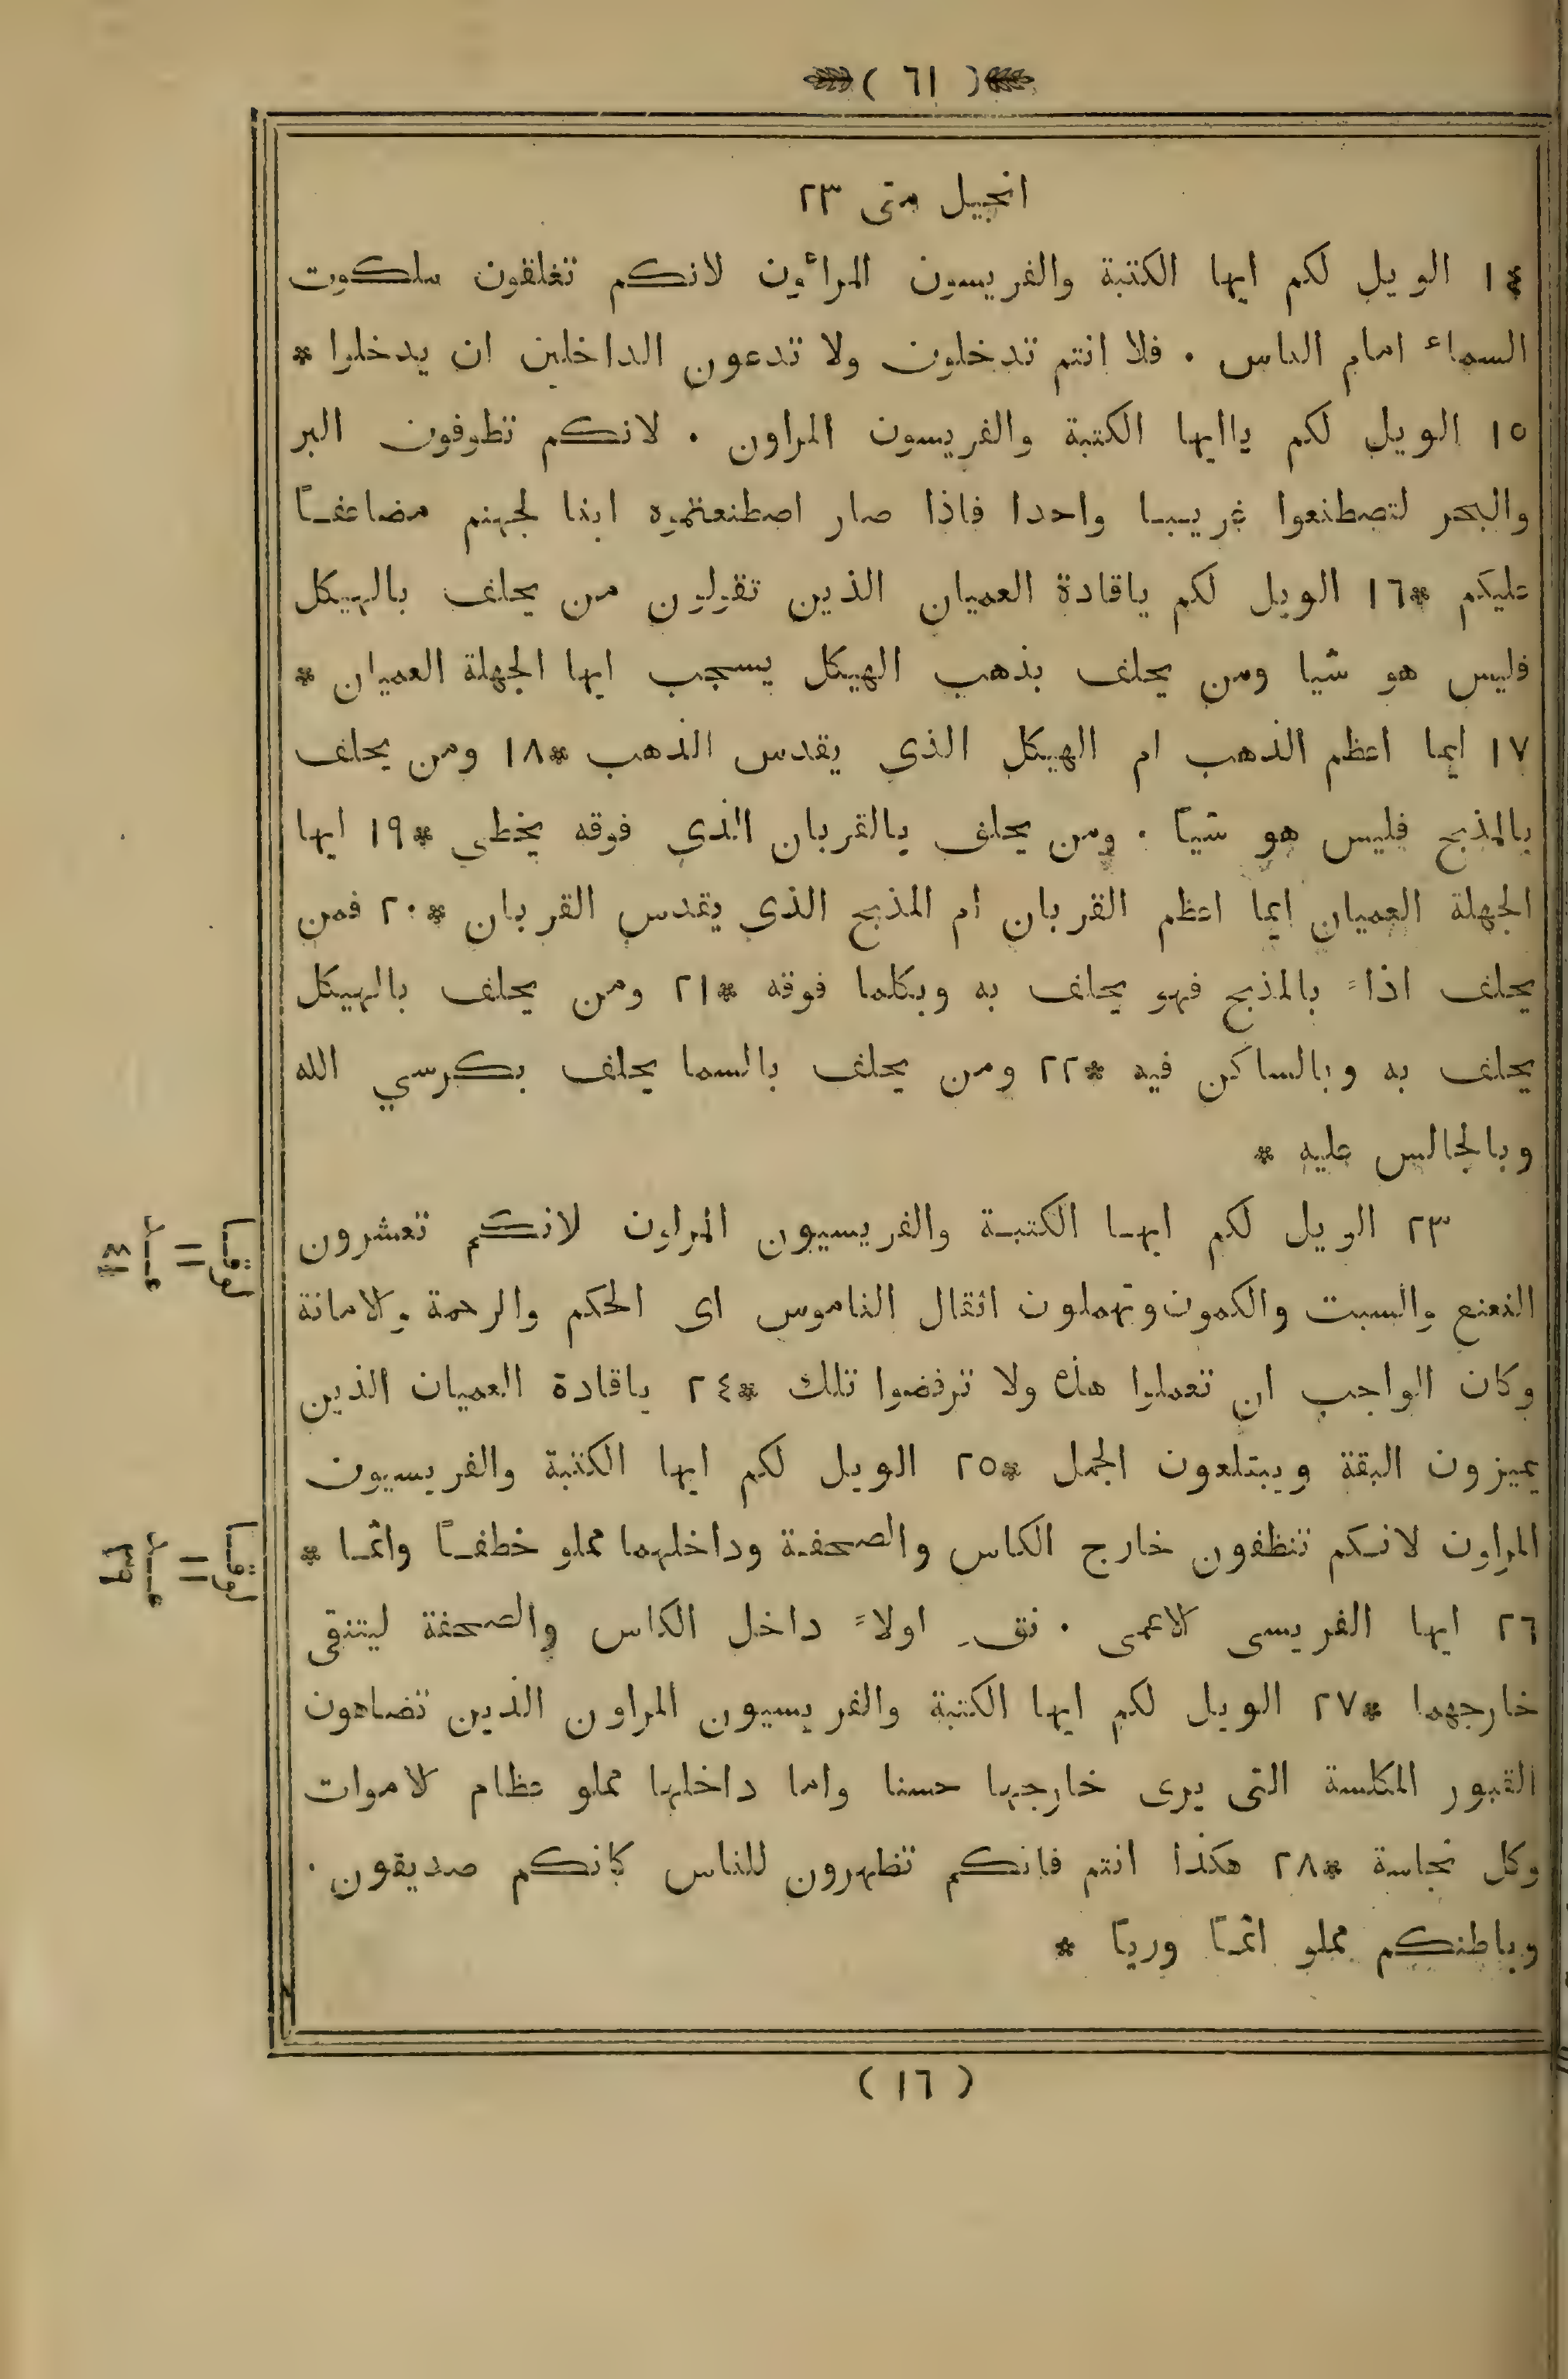 ( ٦١ )
انجيل متى ٢٣
١٤ الويل لكم ايها الكتبة والفريسون المرأون لانكم تغلقون ملكوت
السماء امام الناس . فلا انتم تدخلون ولا تدعون الداخلين ان يدخلوا *
١٥ الويل لكم ياايها الكتبة والفريسون المراون . لانكم تطوفون البر
والبحر لتصطنعوا غريبا واحدا فاذا صار اصطنعتموه ابنا لجهنم مضاعفًا
عليكم *١٦ الويل لكم ياقادة العميان الذين تقولون من يحلف بالهيكل
فليس هو شيا ومن يحلف بذهب الهيكل يسجب ايها الجهلة العميان *
١٧ ايما اعظم الذهب ام الهيكل الذى يقدس الذهب *١٨ ومن يحلف
بالمذبح فليس هو شيًا . ومن يحلف بالقربان الذي فوقه يخطى *١٩ ايها
الجهلة العميان ايما اعظم القربان ام المذبح الذي يقدس القربان *٢٠ فمن
يحلف اذاً بالمذبح فهو يحلف به وبكلما فوقه *٢١ ومن يحلف بالهيكل
يحلف به وبالساكن فيه *٢٢ ومن يحلف بالسما يحلف بكرسي الله
وبالجالس عليه *
٢٣ الويل لكم ايها الكتبة والفريسيون المراون لانكم تعشرون
النعنع والسبت والكمون وتهملون اثقال الناموس اى الحكم والرحمة والامانة
وكان الواجب ان تعملوا هذه ولا ترفضوا تلك *٢٤ ياقادة العميان الذين
يميزون البقة ويبتلعون الجمل *٢٥ الويل لكم ايها الكتبة والفريسيون
المراون لانكم تنظفون خارج الكاس والصحفة وداخلهما مملو خطفًا واثما *
٢٦ ايها الفريسى الاعمى . نقِ اولاً داخل الكاس والصحفة ليتنقى
خارجهما *٢٧ الويل لكم ايها الكتبة والفريسيون المراون الذين تضاهون
القبور المكلسة التى يرى خارجها حسنا واما داخلها مملو عظام الاموات
وكل نجاسة *٢٨ هكذا انتم فانكم تظهرون للناس كانكم صديقون .
وباطنكم مملو اثمًا وريًا *
لوقا
١١
عـدد
لوقا
١١
عـدد
٣٩
( ١٦ )